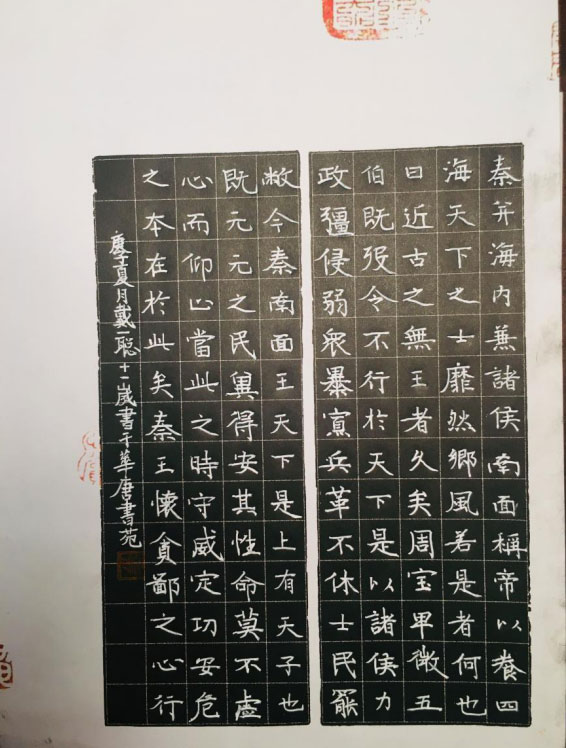 秦并海内兼諸侯南面稱帝以養四
海天下之士靡然鄉風若是者何也
曰近古之無王者久矣周室卑微五
伯既歿令不行於天下是以諸侯力
政彊侵弱衆暴寡兵革不休士民罷
敝今秦南面王天下是上有天子也
既元元之民冀得安其性命莫不虛
心而仰上當此之時守威定功安危
之本在於此矣秦王懷貪鄙之心行
庚子夏月戴一聪十一歲書于華唐書苑